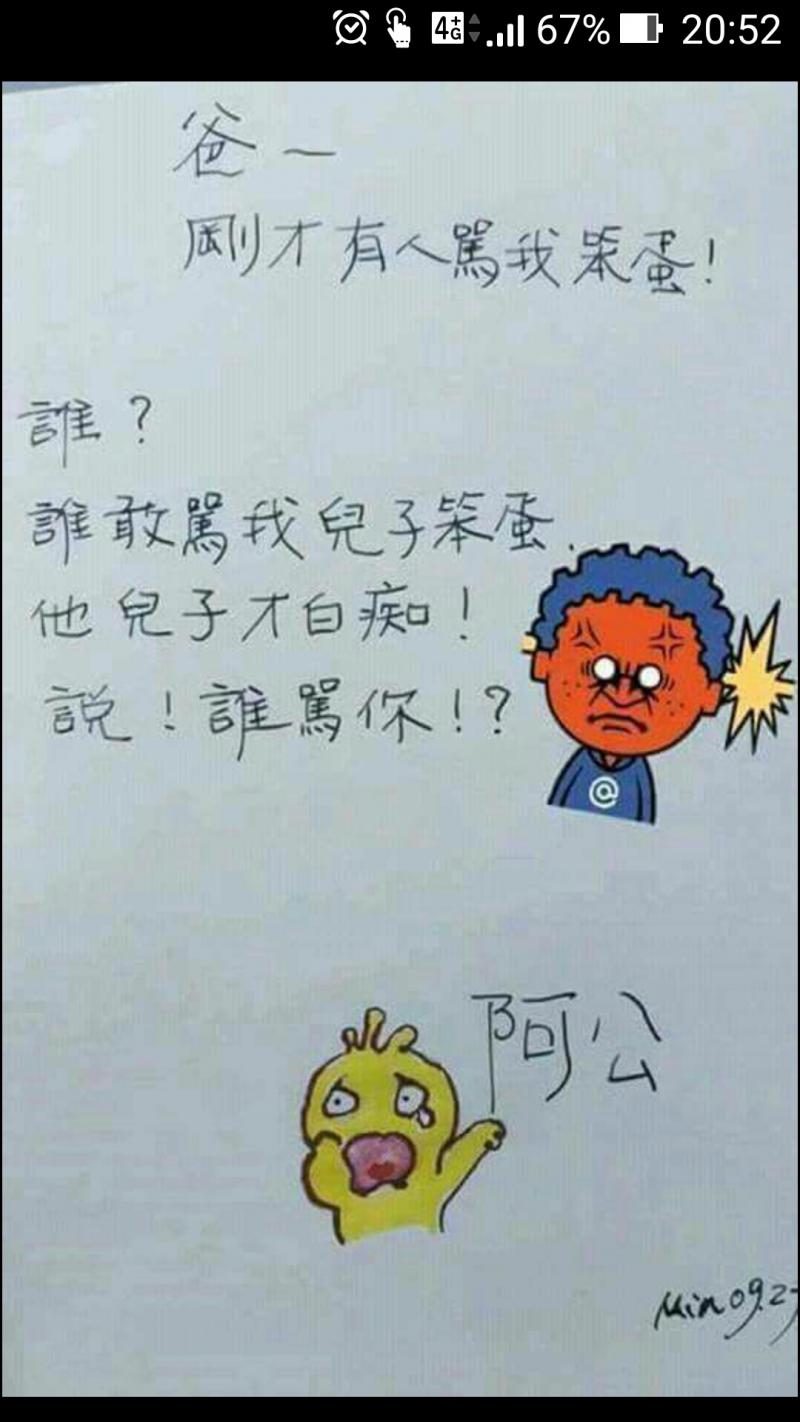 4G+ 67% 20:52
爸－
剛才有人罵我笨蛋！
誰？
誰敢罵我兒子笨蛋.
他兒子才白痴！
說！誰罵你！？
@
阿公
Min 09.27